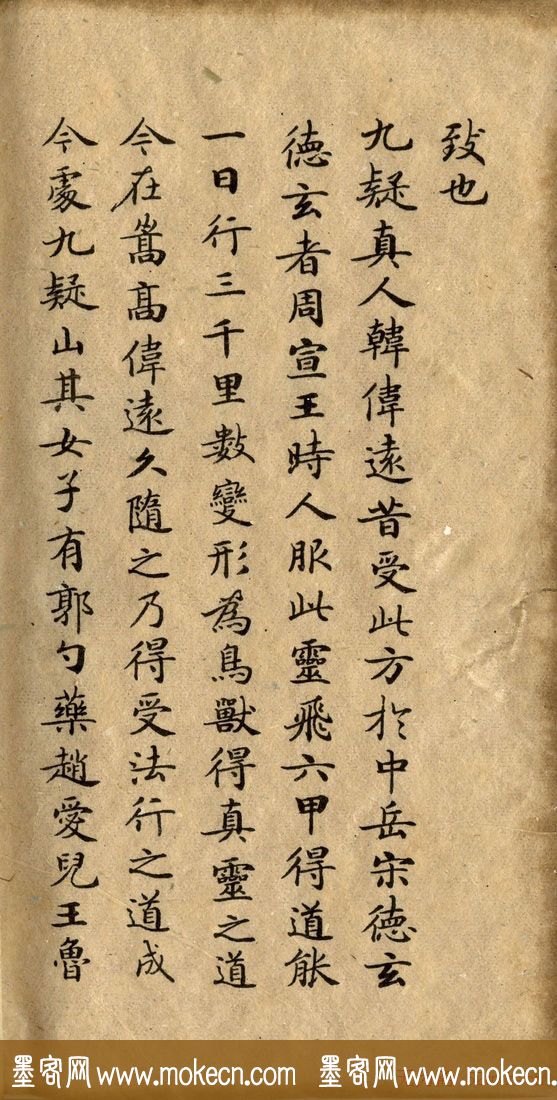 致也
九疑真人韓偉遠昔受此方於中岳宋德玄
德玄者周宣王時人服此靈飛六甲得道能
一日行三千里數變形為鳥獸得真靈之道
今在嵩高偉遠久隨之乃得受法行之道成
今處九疑山其女子有郭勺藥趙愛兒王魯
墨客网 www.mokecn.com 墨客网 www.mokecn.com